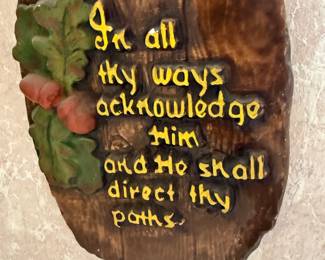 In all
thy ways
acknowledge
Him
and He shall
direct thy
paths.